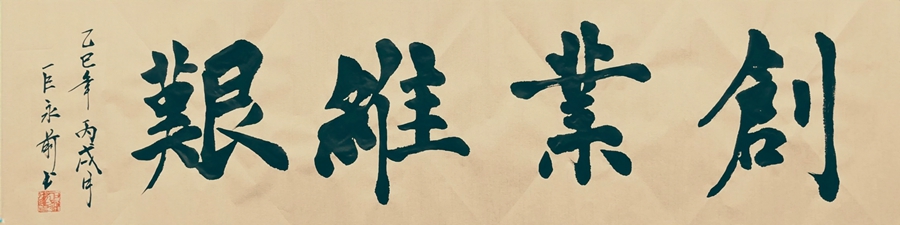 創業維艱
乙巳年 丙戌月
臣永前书